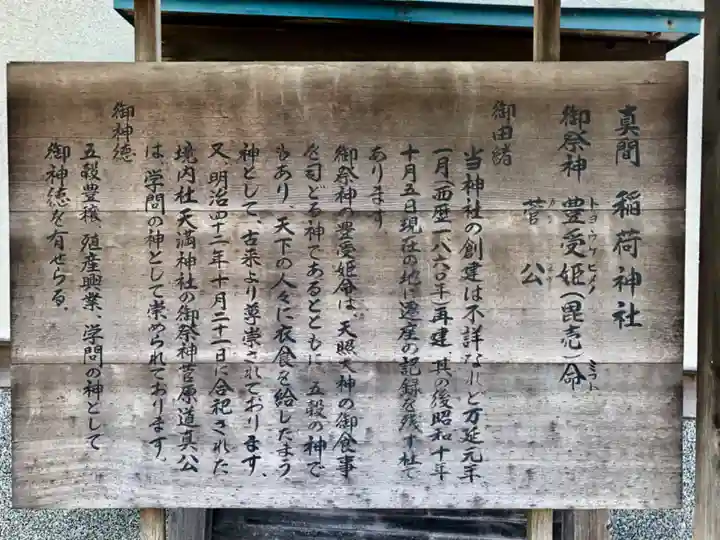 真間 稲荷神社
御祭神 豊受姫(毘売)命
トヨウケヒメノ ミコト
菅公
御由緒
当神社の創建は不詳なれど万延元年
一月(西暦一八六〇年)再建、其の後昭和十年
十月五日現在の地に遷座の記録を残す社で
あります。
御祭神の豊受姫命は、天照大神の御食事
を司どる神であるとともに、五穀の神で
もあり、天下の人々に衣食を給したまう
神として、古来より尊崇されております、
又、明治四十二年十月二十一日に合祀された
境内社天満神社の御祭神菅原道真公
は、学問の神として崇められております。
御神徳
五穀豊穣、殖産興業、学問の神として
御神徳を有せらる。